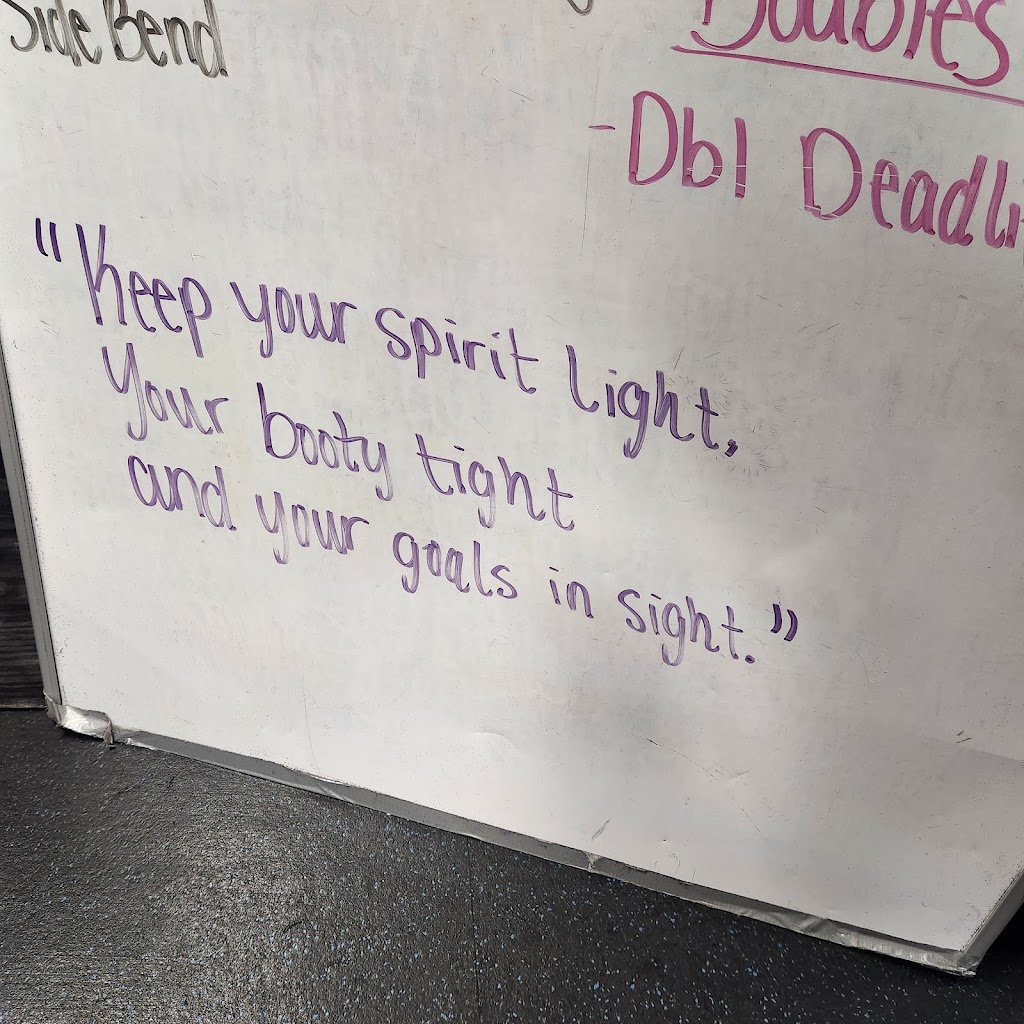 Side Bend
Doubles
- Dbl Deadli
"Keep your spirit light,
Your booty tight
and your goals in sight."